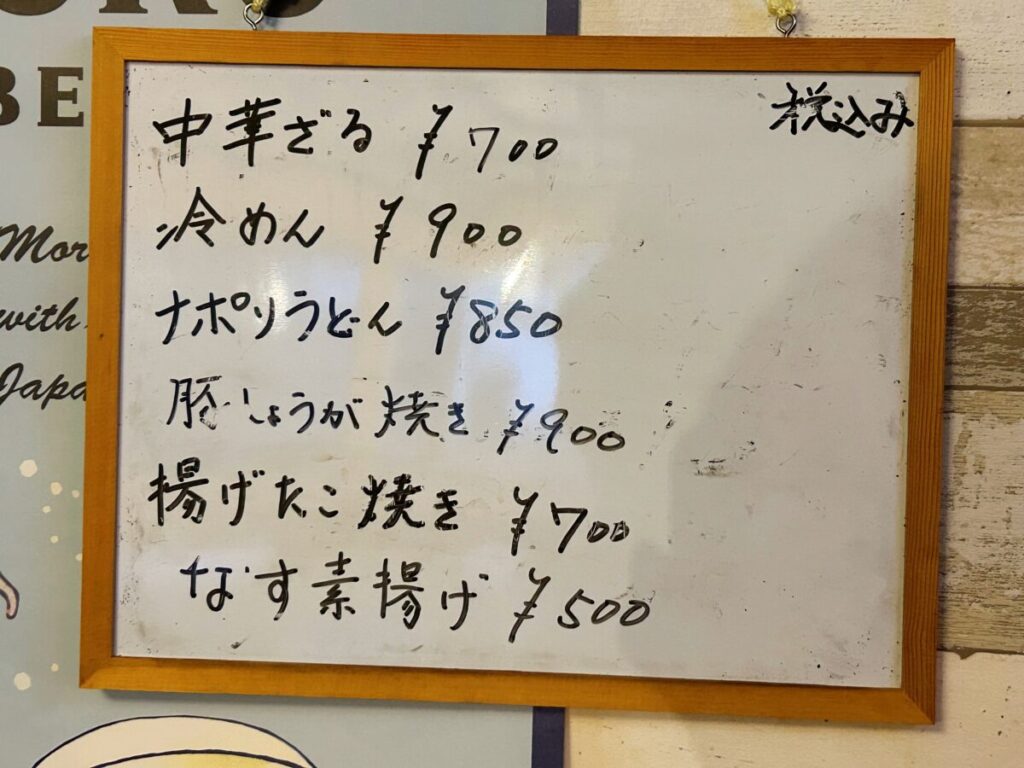 税込み
中華ざる ¥700
冷めん ¥900
ナポリうどん ¥850
豚しょうが焼き ¥900
揚げたこ焼き ¥700
なす素揚げ ¥500
BE
with
Japa